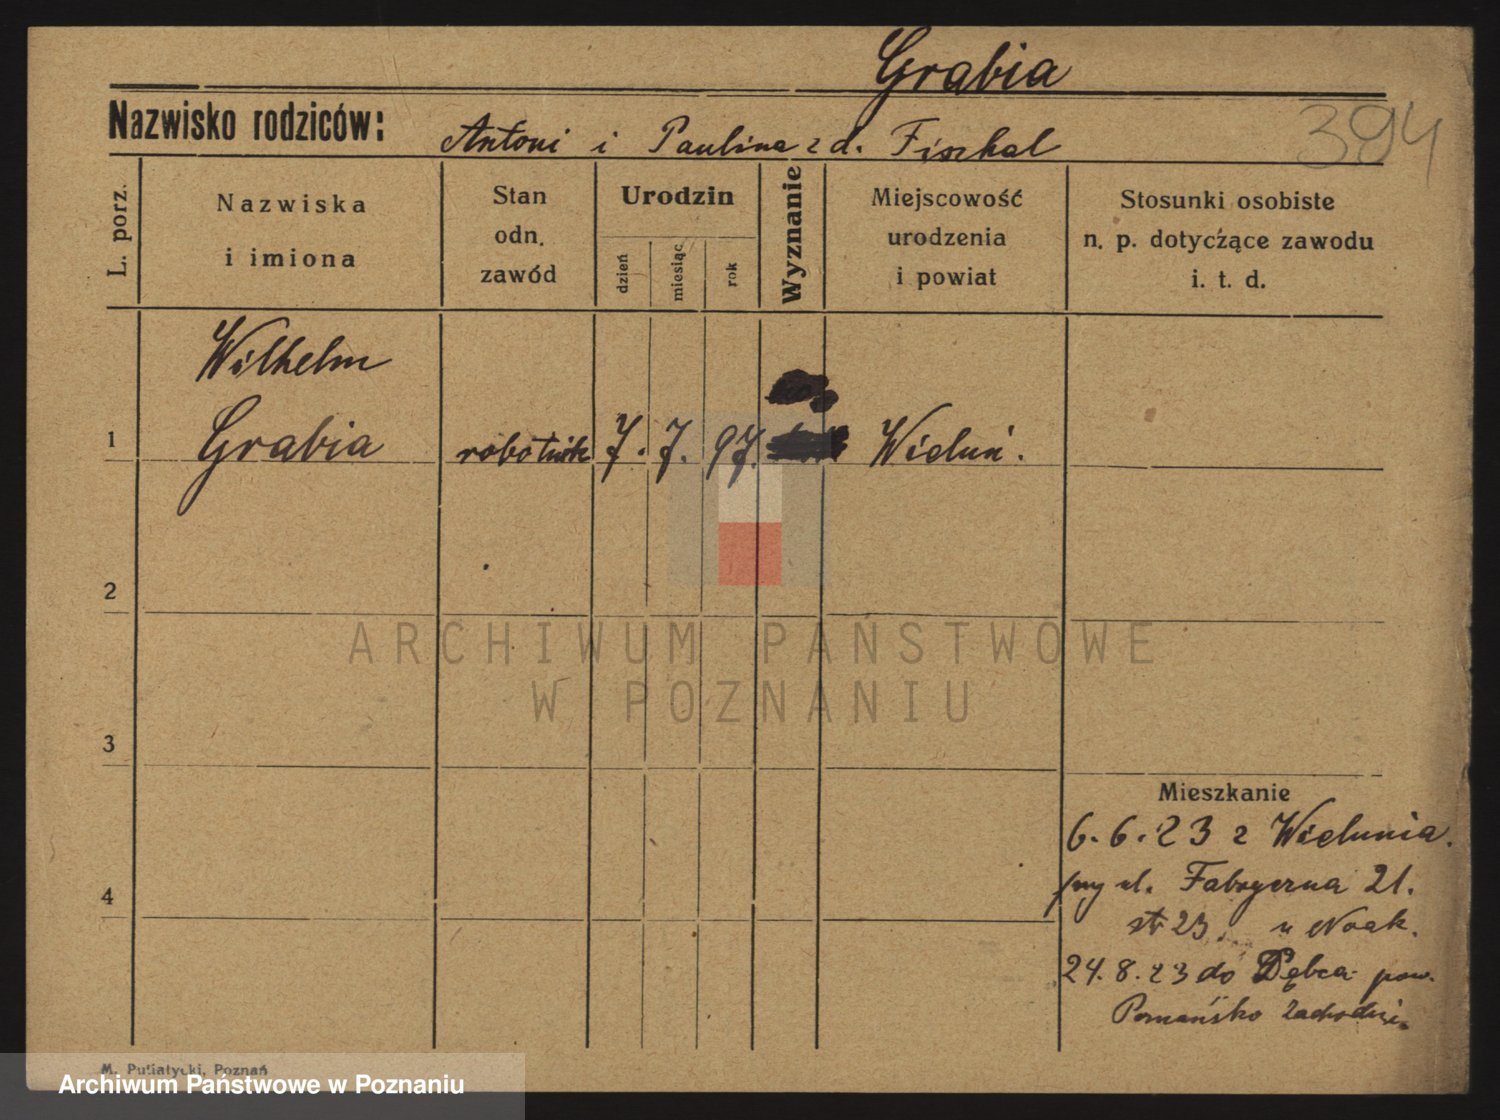 Grabia
Nazwisko rodziców: Antoni i Paulina z d. Fiszhal
394
L. porz.
Nazwiska i imiona
Stan odn. zawód
Urodzin
dzień
miesiąc
rok
Wyznanie
Miejscowość urodzenia i powiat
Stosunki osobiste n. p. dotyczące zawodu i. t. d.
Wilhelm
1 Grabia robotnik 7. 7. 97. Wieluń.
2
ARCHIWUM PAŃSTWOWE
W POZNANIU
3
Mieszkanie
6. 6. 23 z Wielunia.
4 ul. Fabryczna 21.
str 23. u Noak.
24. 8. 23 do Dębca pow.
Poznańsko Zachodni.
M. Putiatycki, Poznań
Archiwum Państwowe w Poznaniu